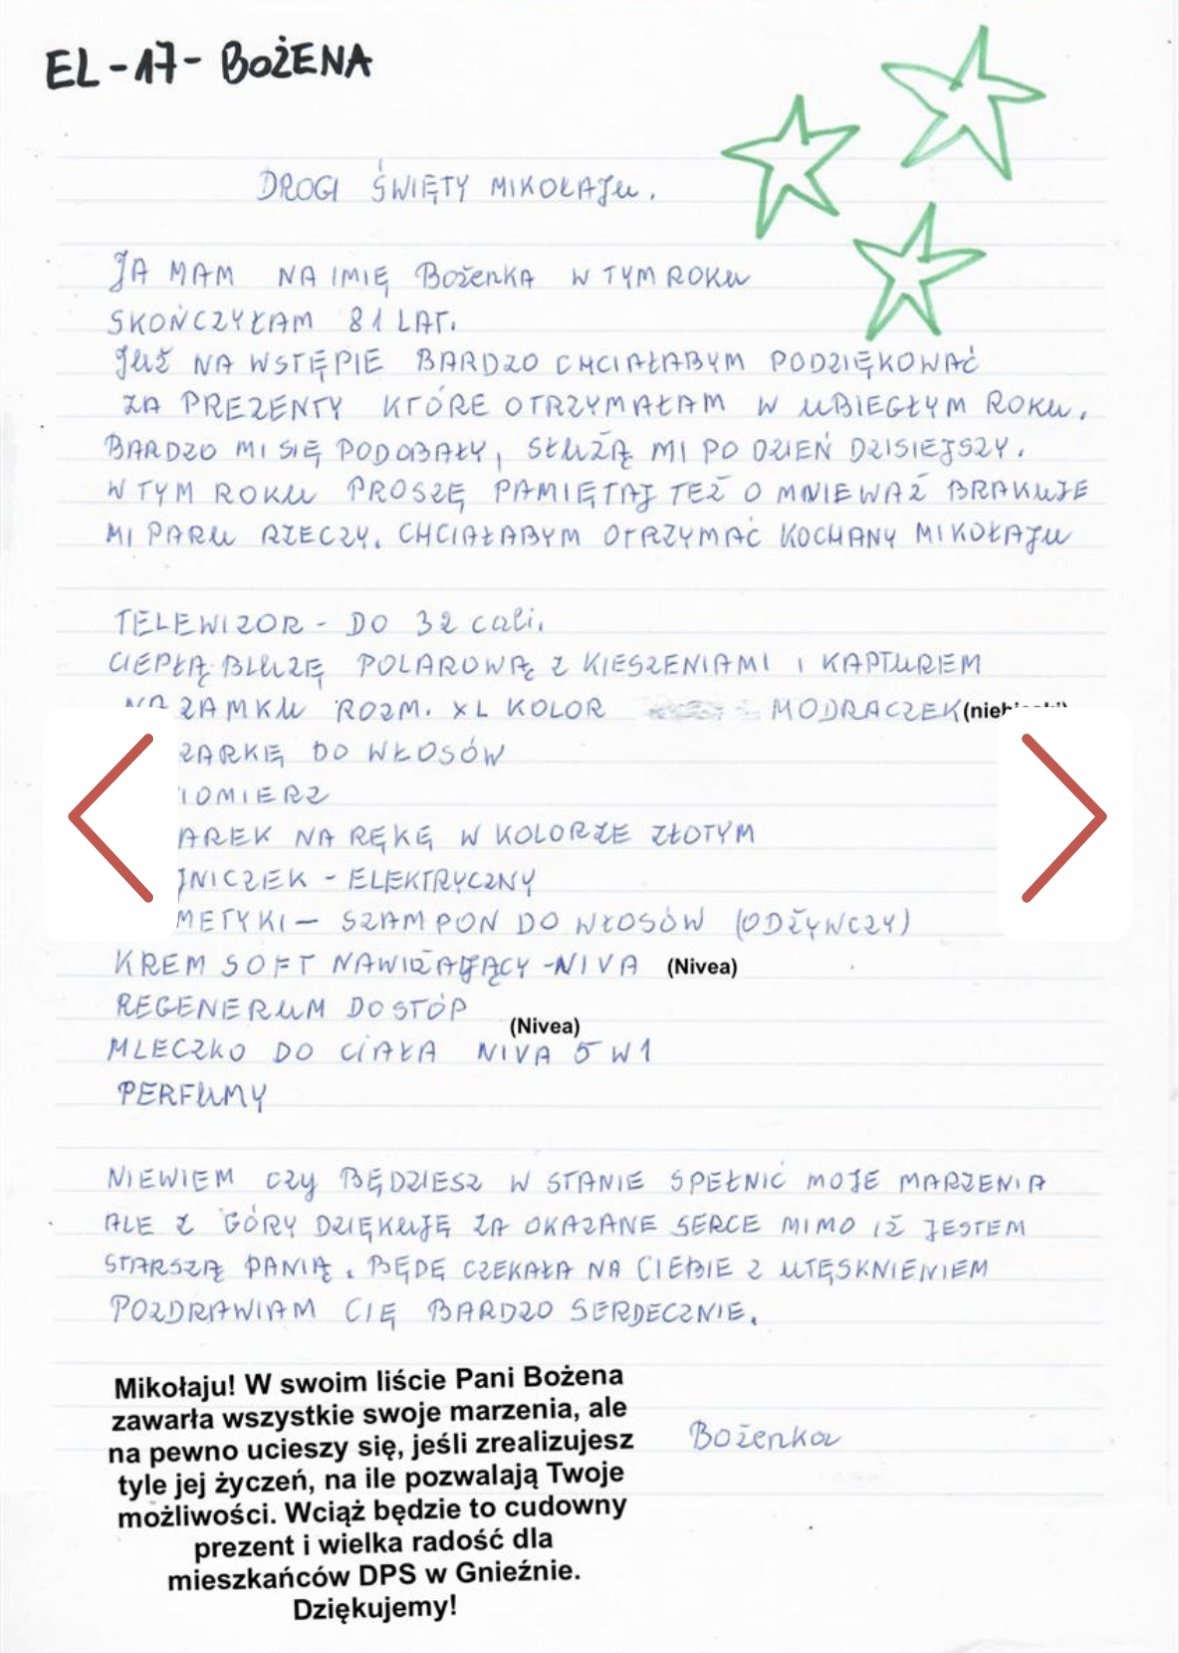 EL-17-BOŻENA
DROGI ŚWIĘTY MIKOŁAJU.
JA MAM NA IMIĘ BOżENKA W TYM ROKU
SKOŃCZYŁAM 81 LAT.
JUŻ NA WSTĘPIE BARDZO CHCIAŁABYM PODZIĘKOWAĆ
ZA PREZENTY KTÓRE OTRZYMAŁAM W UBIEGŁYM ROKU.
BARDZO MI SIĘ PODOBAŁY, SŁUŻĄ MI PO DZIEŃ DZISIEJSZY.
W TYM ROKU PROSZĘ PAMIĘTAJ TEŻ O MNIE WAŻ BRAKUJE
MI PARU RZECZY. CHCIAŁABYM OTRZYMAĆ KOCHANY MIKOŁAJU
TELEWIZOR - DO 32 cali.
CIEPŁĄ BLUZĘ POLAROWĄ Z KIESZENIAMI I KAPTUREM
NA ZAMKU ROZM. XL KOLOR MODRACZEK
ZARKĘ DO WŁOSÓW
IOMIERZ
AREK NA RĘKĘ W KOLORZE ZŁOTYM
JNICZEK - ELEKTRYCZNY
METYKI - SZAMPON DO WŁOSÓW (ODŻYWCZY)
KREM SOFT NAWIŻAJĄCY - NIVA (Nivea)
REGENERUM DO STÓP
(Nivea)
MLECZKO DO CIAŁA NIVA 5 W 1
PERFUMY
NIEWIEM CZY BĘDZIESZ W STANIE SPEŁNIĆ MOJE MARZENIA
ALE Z GÓRY DZIĘKUJĘ ZA OKAZANE SERCE MIMO IŻ JESTEM
STARSZĄ PANIĄ. BĘDĘ CZEKAŁA NA CIEBIE Z UTĘSKNIENIEM
POZDRAWIAM CIĘ BARDZO SERDECZNIE.
Bożenka
Mikołaju! W swoim liście Pani Bożena
zawarła wszystkie swoje marzenia, ale
na pewno ucieszy się, jeśli zrealizujesz
tyle jej życzeń, na ile pozwalają Twoje
możliwości. Wciąż będzie to cudowny
prezent i wielka radość dla
mieszkańców DPS w Gnieźnie.
Dziękujemy!